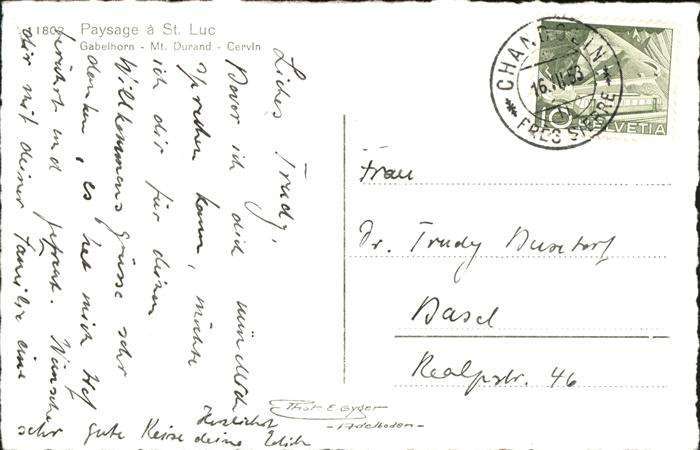 1803 Paysage à St. Luc
Gabelhorn - Mt. Durand - Cervin
Liebes Trudy,
Bevor ich dich mündlich
sprechen kann, möchte
ich dir für deinen
Willkommensgrüsse sehr
danken, es hat mich tief
berührt und gefreut. Wünsche
dir mit deiner Familie eine
sehr gute Reise
Herzlichst
deine
CHANDOLIN
16.II.53
PRES SIERRE
10 HELVETIA
Frau
Dr. Trudy
Basel
Realpstr. 46
Phot. E. Gyger
- Adelboden -